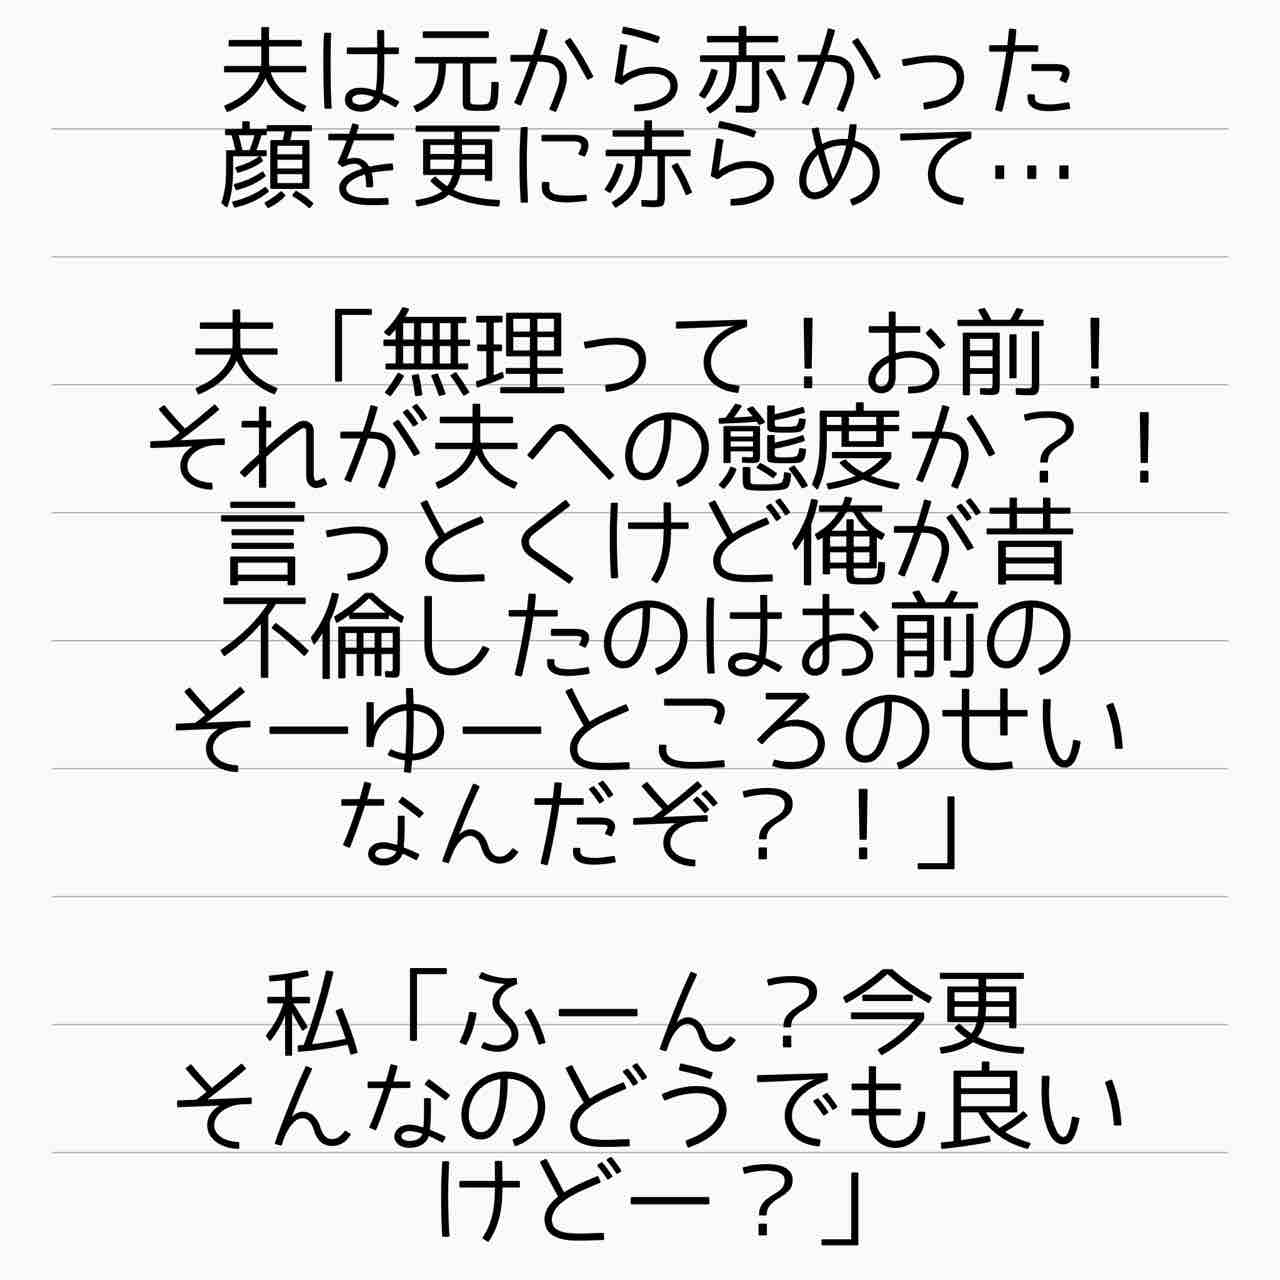 夫は元から赤かった
顔を更に赤らめて…
夫「無理って！お前！
それが夫への態度か？！
言っとくけど俺が昔
不倫したのはお前の
そーゆーところのせい
なんだぞ？！」
私「ふーん？今更
そんなのどうでも良い
けどー？」